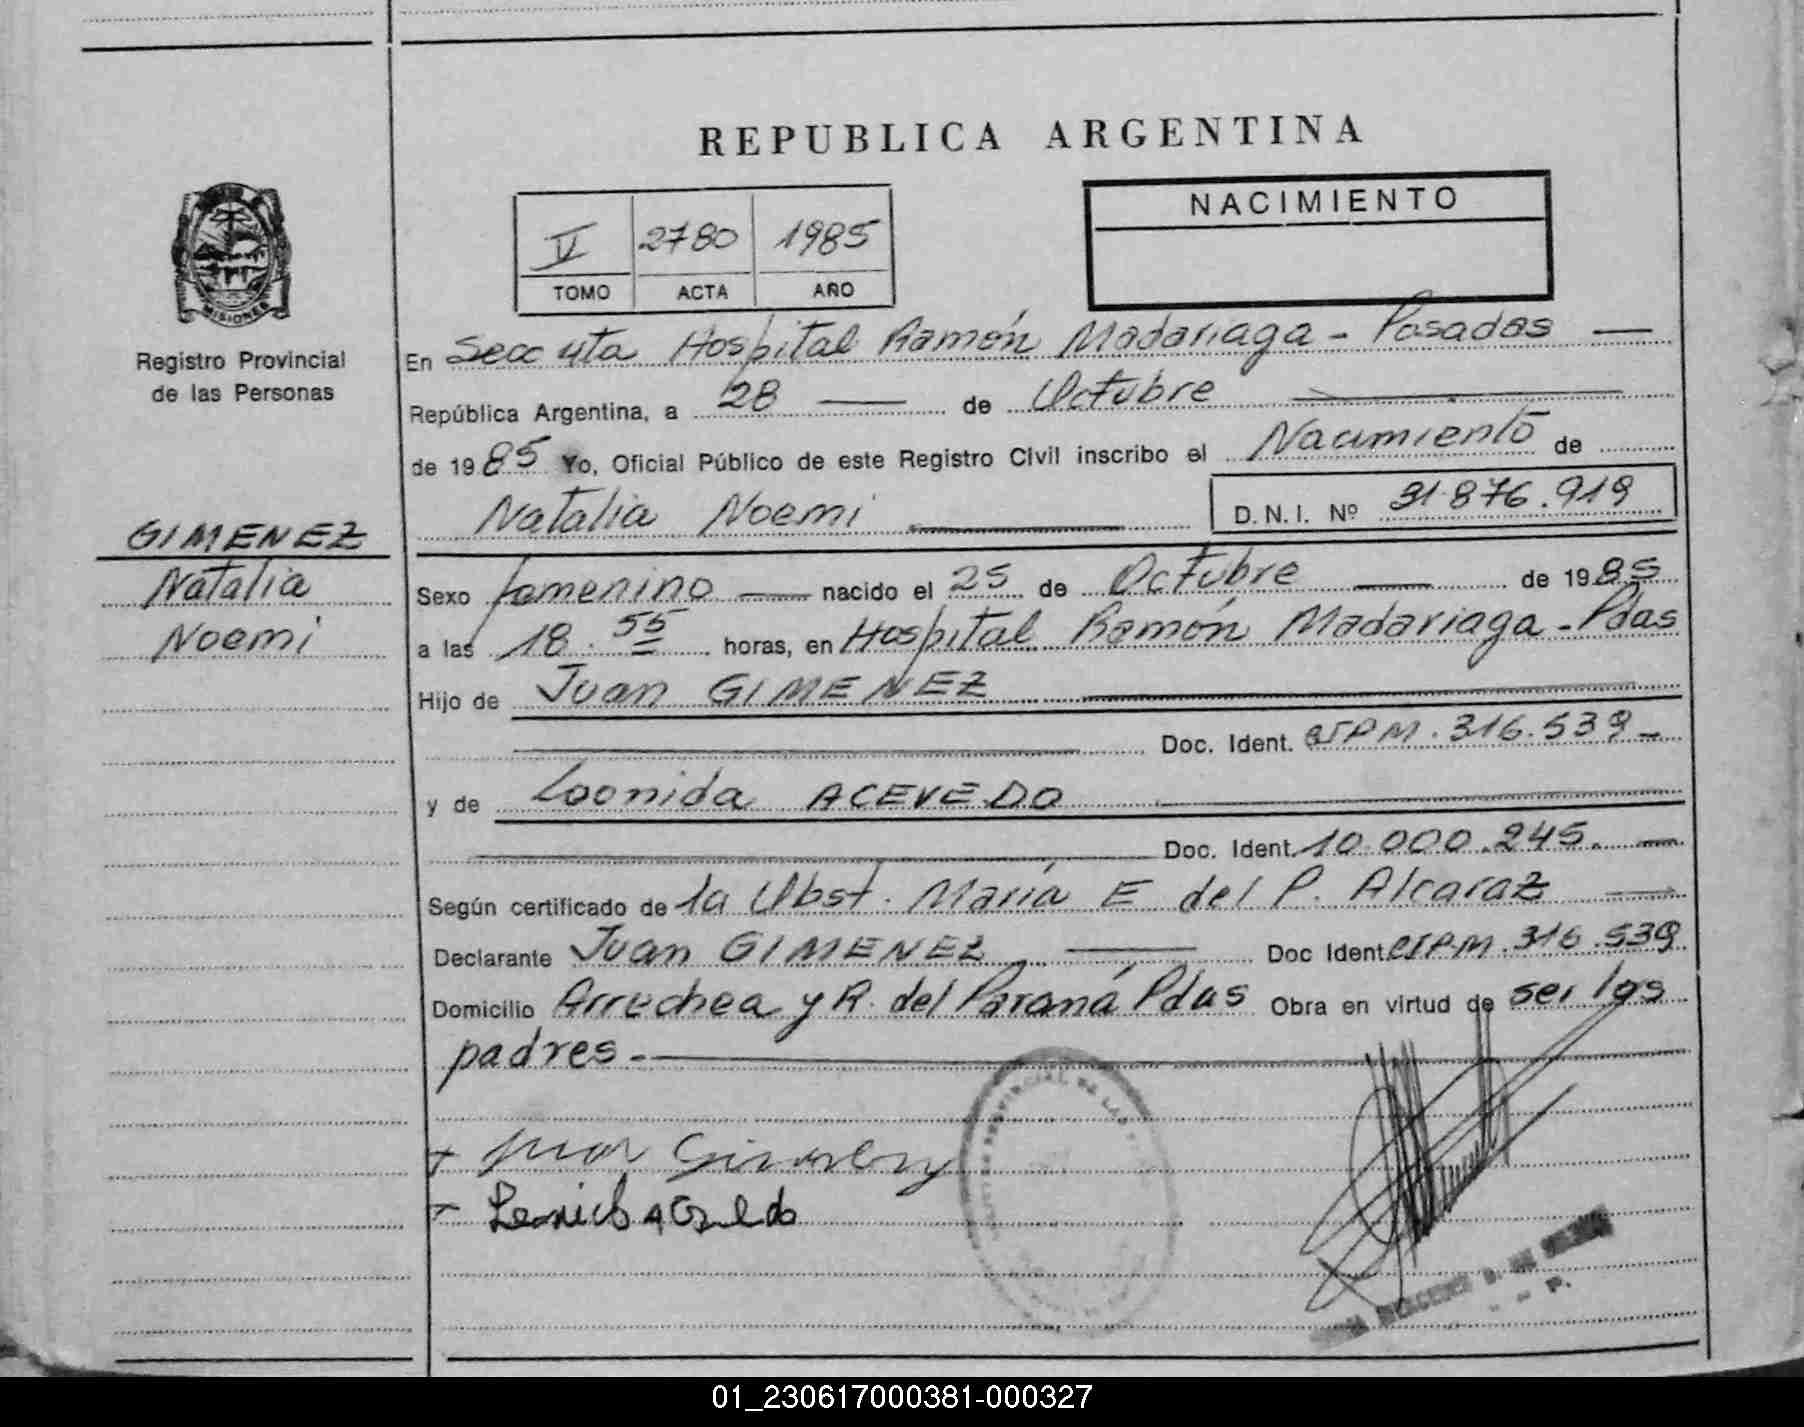 REPUBLICA ARGENTINA
NACIMIENTO
V 2780 1985
TOMO ACTA AÑO
MISIONES
Registro Provincial
de las Personas
En Secc 4ta Hospital Ramón Madariaga - Posadas
República Argentina, a 28 de Octubre
de 1985 Yo, Oficial Público de este Registro Civil inscribo el Nacimiento de
Natalia Noemi D.N.I. Nº 31.876.919
GIMENEZ
Natalia
Noemi
Sexo femenino nacido el 25 de Octubre de 1985
a las 18.55 horas, en Hospital Ramón Madariaga - Pdas
Hijo de Juan GIMENEZ
Doc. Ident. CIPM. 316.539 -
y de Leonida ACEVEDO
Doc. Ident. 10.000.245.
Según certificado de la Obst. María E del P. Alcaraz
Declarante Juan GIMENEZ Doc Ident CIPM. 316.539
Domicilio Arrechea y R. del Paraná Pdas Obra en virtud de ser los
padres.-
+ Juan Gimenez
+ Leonida Acevedo
01_230617000381-000327